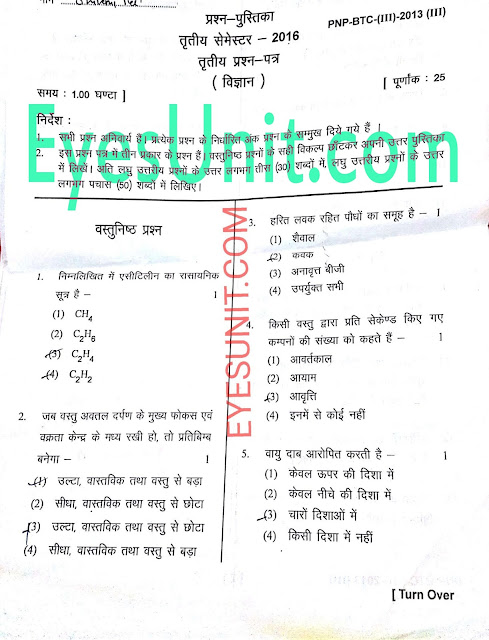 प्रश्न-पुस्तिका
PNP-BTC-(III)-2013 (III)
तृतीय सेमेस्टर – 2016
तृतीय प्रश्न-पत्र
( विज्ञान )
समय : 1.00 घण्टा ]
[ पूर्णांक : 25
निर्देश :
1. सभी प्रश्न अनिवार्य हैं। प्रत्येक प्रश्न के निर्धारित अंक प्रश्न के सम्मुख दिये गये हैं ।
2. इस प्रश्न पत्र में तीन प्रकार के प्रश्न हैं। वस्तुनिष्ठ प्रश्नों के सही विकल्प छाँटकर अपनी उत्तर पुस्तिका
में लिखें। अति लघु उत्तरीय प्रश्नों के उत्तर लगभग तीस (30) शब्दों में, लघु उत्तरीय प्रश्नों के उत्तर
लगभग पचास (50) शब्दों में लिखिए।
EyesUnit.com
वस्तुनिष्ठ प्रश्न
1. निम्नलिखित में एसीटिलीन का रासायनिक
सूत्र है – 1
(1) CH₄
(2) C₂H₆
(3) C₂H₄
(4) C₂H₂
2. जब वस्तु अवतल दर्पण के मुख्य फोकस एवं
वक्रता केन्द्र के मध्य रखी हो, तो प्रतिबिम्ब
बनेगा – 1
(1) उल्टा, वास्तविक तथा वस्तु से बड़ा
(2) सीधा, वास्तविक तथा वस्तु से छोटा
(3) उल्टा, वास्तविक तथा वस्तु से छोटा
(4) सीधा, वास्तविक तथा वस्तु से बड़ा
EYESUNIT.COM
3. हरित लवक रहित पौधों का समूह है – 1
(1) शैवाल
(2) कवक
(3) अनावृत्त बीजी
(4) उपर्युक्त सभी
4. किसी वस्तु द्वारा प्रति सेकेण्ड किए गए
कम्पनों की संख्या को कहते हैं – 1
(1) आवर्तकाल
(2) आयाम
(3) आवृत्ति
(4) इनमें से कोई नहीं
5. वायु दाब आरोपित करती है – 1
(1) केवल ऊपर की दिशा में
(2) केवल नीचे की दिशा में
(3) चारों दिशाओं में
(4) किसी दिशा में नहीं
[ Turn Over